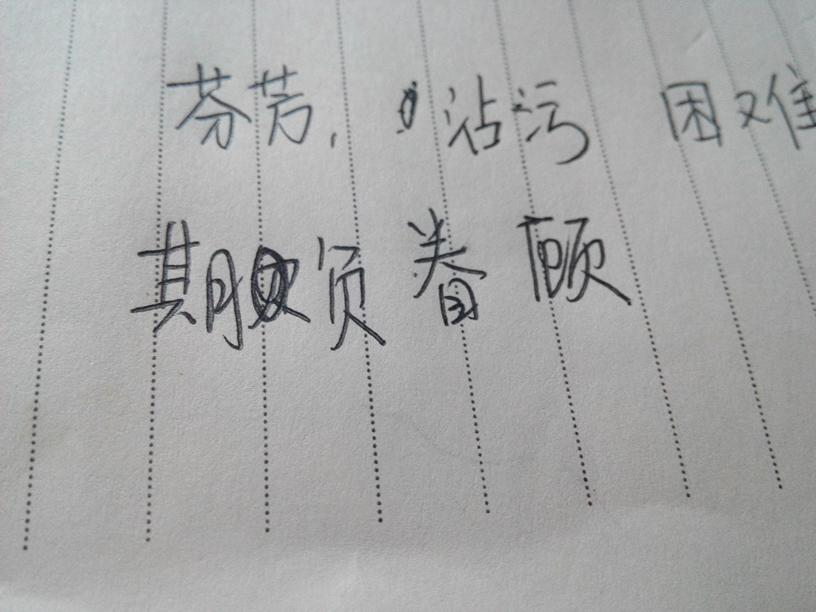 芬芳, 沾污 困难
期负 眷顾